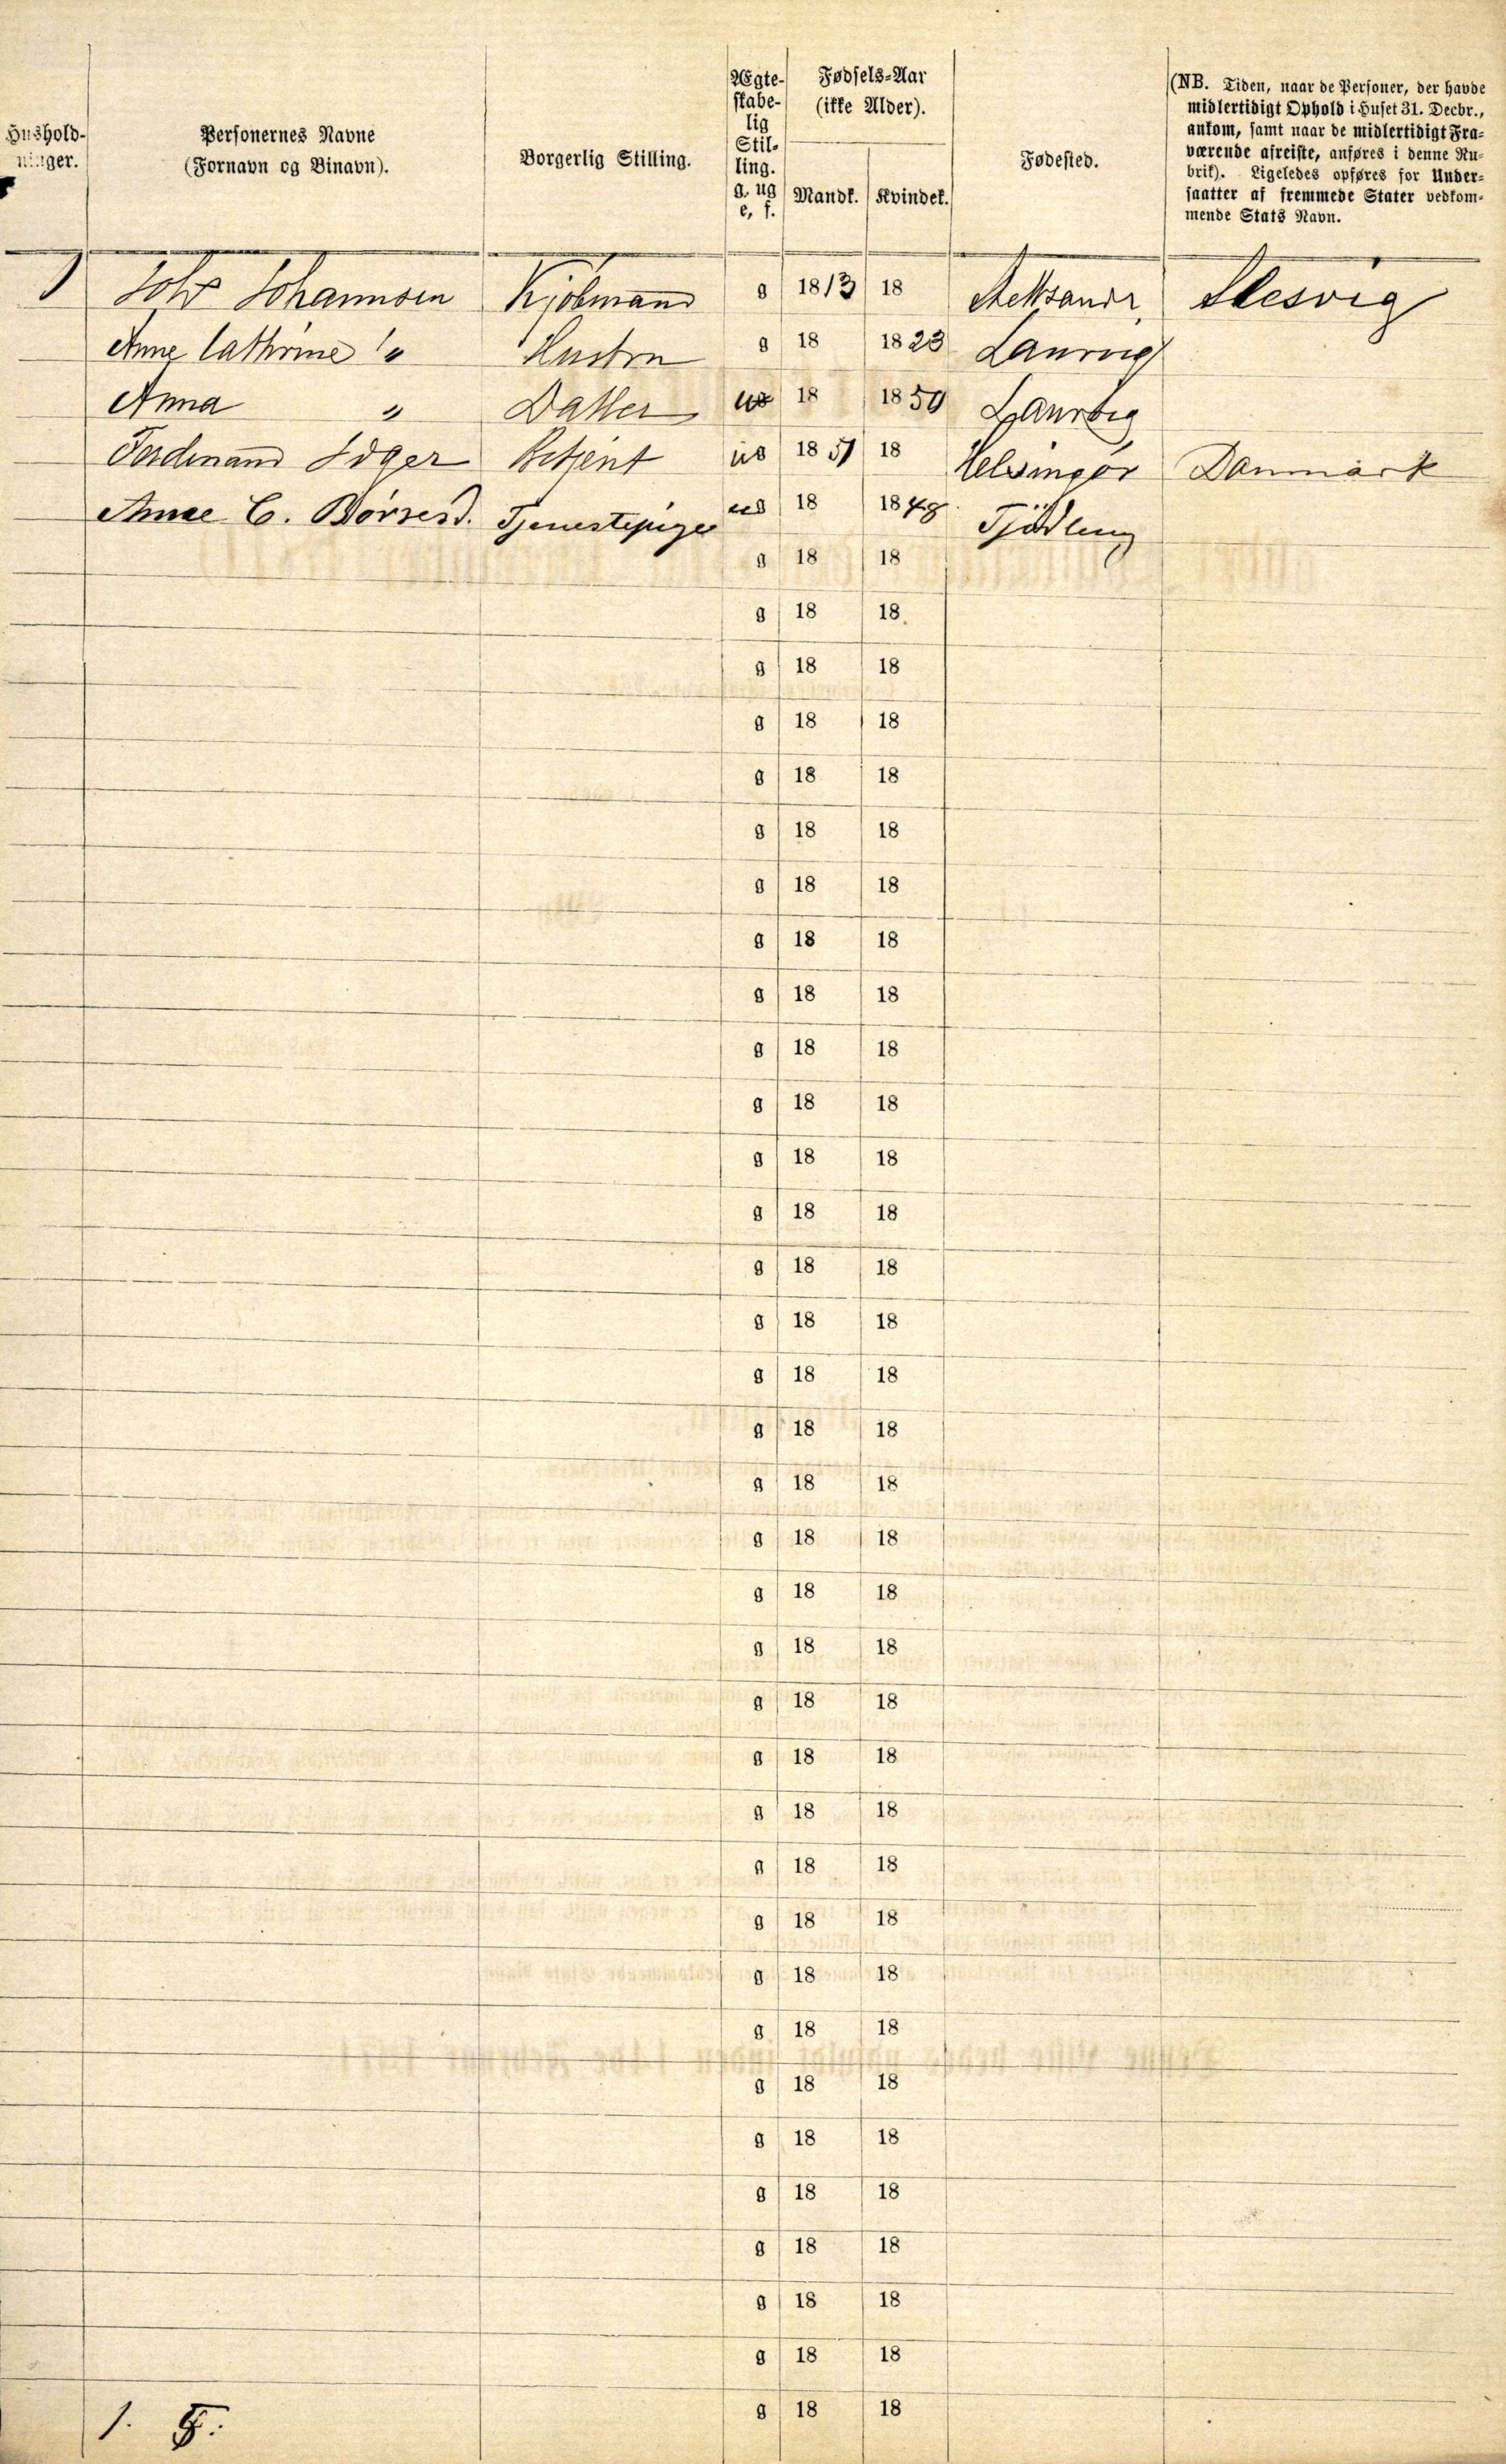 Hushold-
ninger.
Personernes Navne
(Fornavn og Binavn).
Borgerlig Stilling.
Ægte-
skabe-
lig
Stil-
ling.
g, ug
e, f.
Fødsels-Aar
(ikke Alder).
Mandk. Kvindek.
Fødested.
(NB. Tiden, naar de Personer, der havde
midlertidigt Ophold i Huset 31. Decbr.,
ankom, samt naar de midlertidigt Fra-
værende afreiste, anføres i denne Ru-
brik). Ligeledes opføres for Under-
saatter af fremmede Stater vedkom-
mende Stats Navn.
1 Johs Johannsen Kjöbmand g 1813 18 Slesvig
Anne Cathrine " Hustru g 18 1823 Laurvig
Anna " Datter ug 18 1850 Laurvig
Ferdinand Betjent ug 1851 18 Helsingör Danmark
Anne C. Tjenestepige ug 18 1848 Tjödling
g 18 18
g 18 18
g 18 18
g 18 18
g 18 18
g 18 18
g 18 18
g 18 18
g 18 18
g 18 18
g 18 18
g 18 18
g 18 18
g 18 18
g 18 18
g 18 18
g 18 18
g 18 18
g 18 18
g 18 18
g 18 18
g 18 18
g 18 18
g 18 18
g 18 18
g 18 18
g 18 18
g 18 18
g 18 18
g 18 18
g 18 18
g 18 18
g 18 18
g 18 18
g 18 18
1. 5.